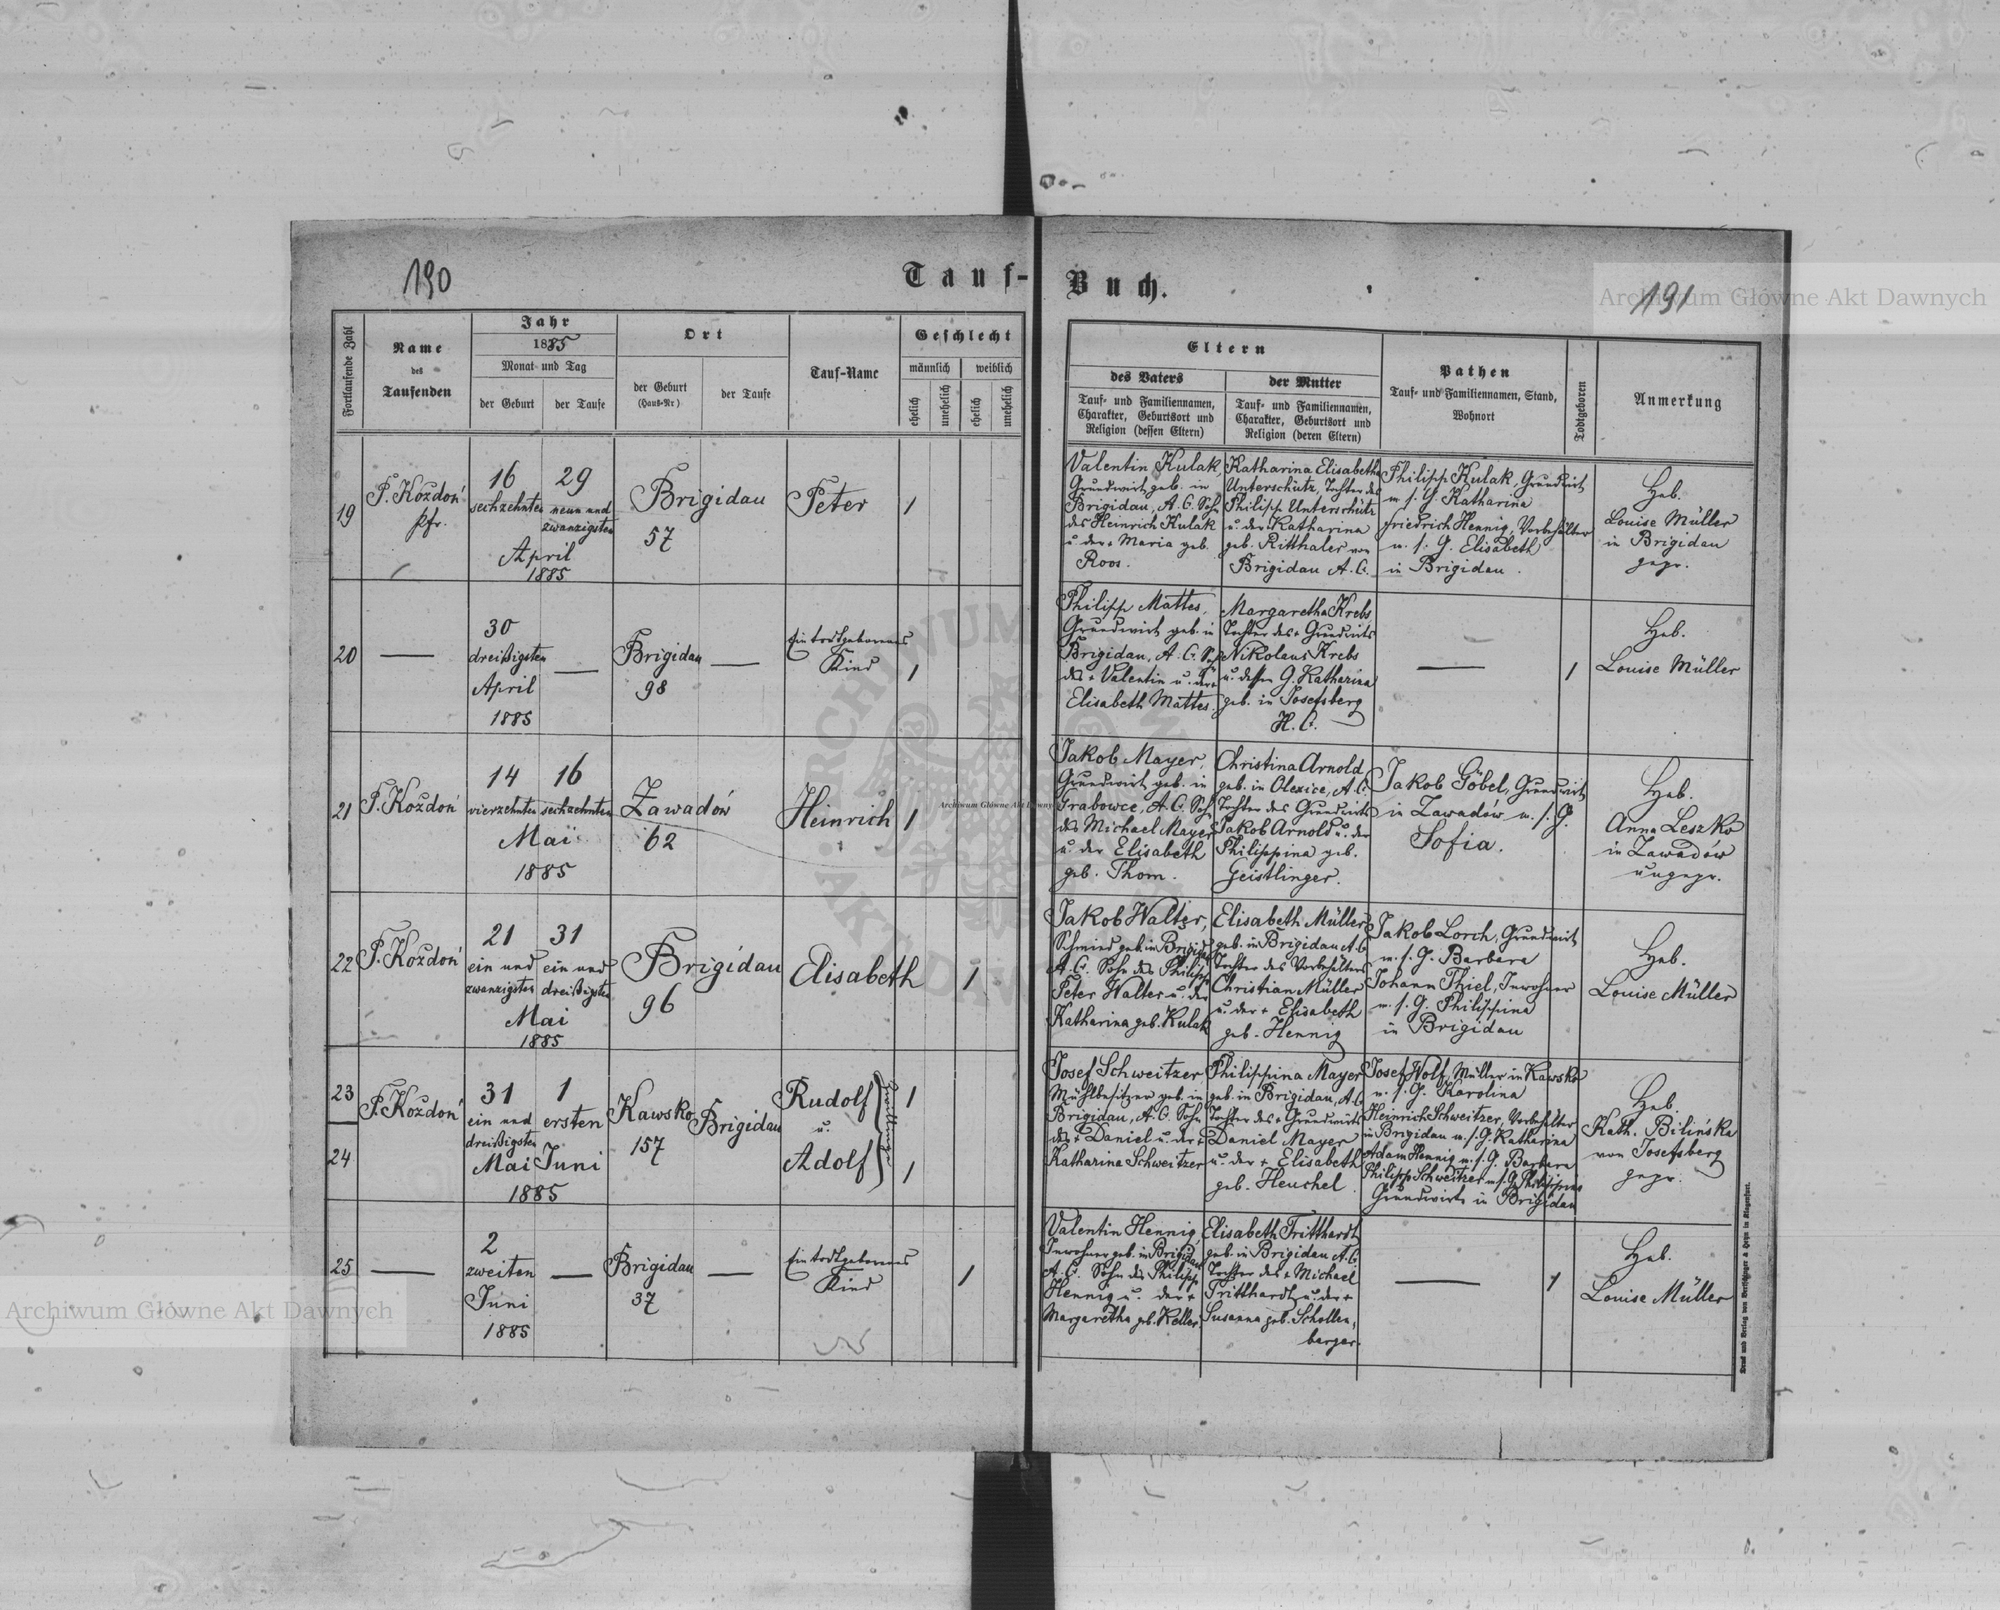 190
Tauf-
Buch.
191
Fortlaufende Zahl
Name
des
Taufenden
Jahr
1885
Monat und Tag
der Geburt
der Taufe
Ort
der Geburt
(Haus-Nr.)
der Taufe
Tauf-Name
Geschlecht
männlich
weiblich
ehelich
unehelich
ehelich
unehelich
Eltern
des Vaters
Tauf- und Familiennamen,
Charakter, Geburtsort und
Religion (dessen Eltern)
der Mutter
Tauf- und Familiennamen,
Charakter, Geburtsort und
Religion (deren Eltern)
Pathen
Tauf- und Familiennamen, Stand,
Wohnort
Todtgeboren
Anmerkung
19
P. Koždoń
Pfr.
16
sechzehnten
29
neun und
zwanzigsten
April
1885
Brigidau
57
Peter
1
Valentin Kulak,
Grundwirt geb. in
Brigidau, A. C. Sohn
des Heinrich Kulak
u. der + Maria geb.
Roos.
Katharina Elisabetha
Unterschütz, Tochter des
Philipp Unterschütz
u. der Katharina
geb. Ritthaler von
Brigidau A. C.
Philipp Kulak, Grundwirt
m. s. G. Katharina
Friedrich Hennig, Vorbehälter
m. s. G. Elisabeth
in Brigidau.
Heb.
Louise Müller
in Brigidau
gepr.
20
—
30
dreißigsten
April
1885
—
Brigidau
98
—
Ein todtgeborenes
Kind
1
Philipp Mattes,
Grundwirt geb. in
Brigidau, A. C. Sohn
des + Valentin u. der +
Elisabeth Mattes.
Margaretha Krebs
Tochter des + Grundwirts
Nikolaus Krebs
u. dessen G. Katharina
geb. in Josefsberg
H. C.
—
1
Heb.
Louise Müller
21
P. Koždoń
14
vierzehnten
16
sechzehnten
Mai
1885
Zawadów
62
Heinrich
1
Jakob Mayer,
Grundwirt geb. in
Grabowce, A. C. Sohn
des Michael Mayer
u. der Elisabeth
geb. Thom.
Christina Arnold
geb. in Olexice, A. C.
Tochter des Grundwirts
Jakob Arnold u. der
Philippina geb.
Geistlinger.
Jakob Göbel, Grundwirt
in Zawadów m. s. G.
Sofia.
Heb.
Anna Leszko
in Zawadów
ungepr.
22
P. Koždoń
21
ein und
zwanzigsten
31
ein und
dreißigsten
Mai
1885
Brigidau
96
Elisabeth
1
Jakob Walter,
Schmied geb. in Brigidau
A. C. Sohn des Philipp
Peter Walter u. der
Katharina geb. Kulak
Elisabeth Müller
geb. in Brigidau A. C.
Tochter des Vorbehälters
Christian Müller
u. der + Elisabeth
geb. Hennig
Jakob Lorch, Grundwirt
m. s. G. Barbara
Johann Thiel, Inwohner
m. s. G. Philippina
in Brigidau
Heb.
Louise Müller
23
24
P. Koždoń
31
ein und
dreißigsten
Mai
1
ersten
Juni
1885
Kawsko
157
Brigidau
Rudolf
u.
Adolf
Zwillinge
1
1
Josef Schweitzer,
Mühlbesitzer geb. in
Brigidau, A. C. Sohn
des + Daniel u. der +
Katharina Schweitzer
Philippina Mayer
geb. in Brigidau, A. C.
Tochter des + Grundwirts
Daniel Mayer
u. der + Elisabeth
geb. Heuchel.
Josef Wolf, Müller in Kawsko
m. s. G. Karolina
Heinrich Schweitzer, Vorbehälter
in Brigidau m. s. G. Katharina
Adam Hennig m. s. G. Barbara
Philipp Schweitzer m. s. G. Philippina
Grundwirte in Brigidau
Heb.
Kath. Bilińska
von Josefsberg
gepr.
25
—
2
zweiten
Juni
1885
—
Brigidau
37
—
Ein todtgeborenes
Kind
1
Valentin Hennig,
Inwohner geb. in Brigidau
A. C. Sohn des Philipp
Hennig u. der +
Margaretha geb. Keller.
Elisabeth Tritthardt
geb. in Brigidau A. C.
Tochter des + Michael
Tritthardt u. der +
Susanna geb. Schollen-
berger.
—
1
Heb.
Louise Müller
Archiwum Główne Akt Dawnych
Archiwum Główne Akt Dawnych
Archiwum Główne Akt Dawnych